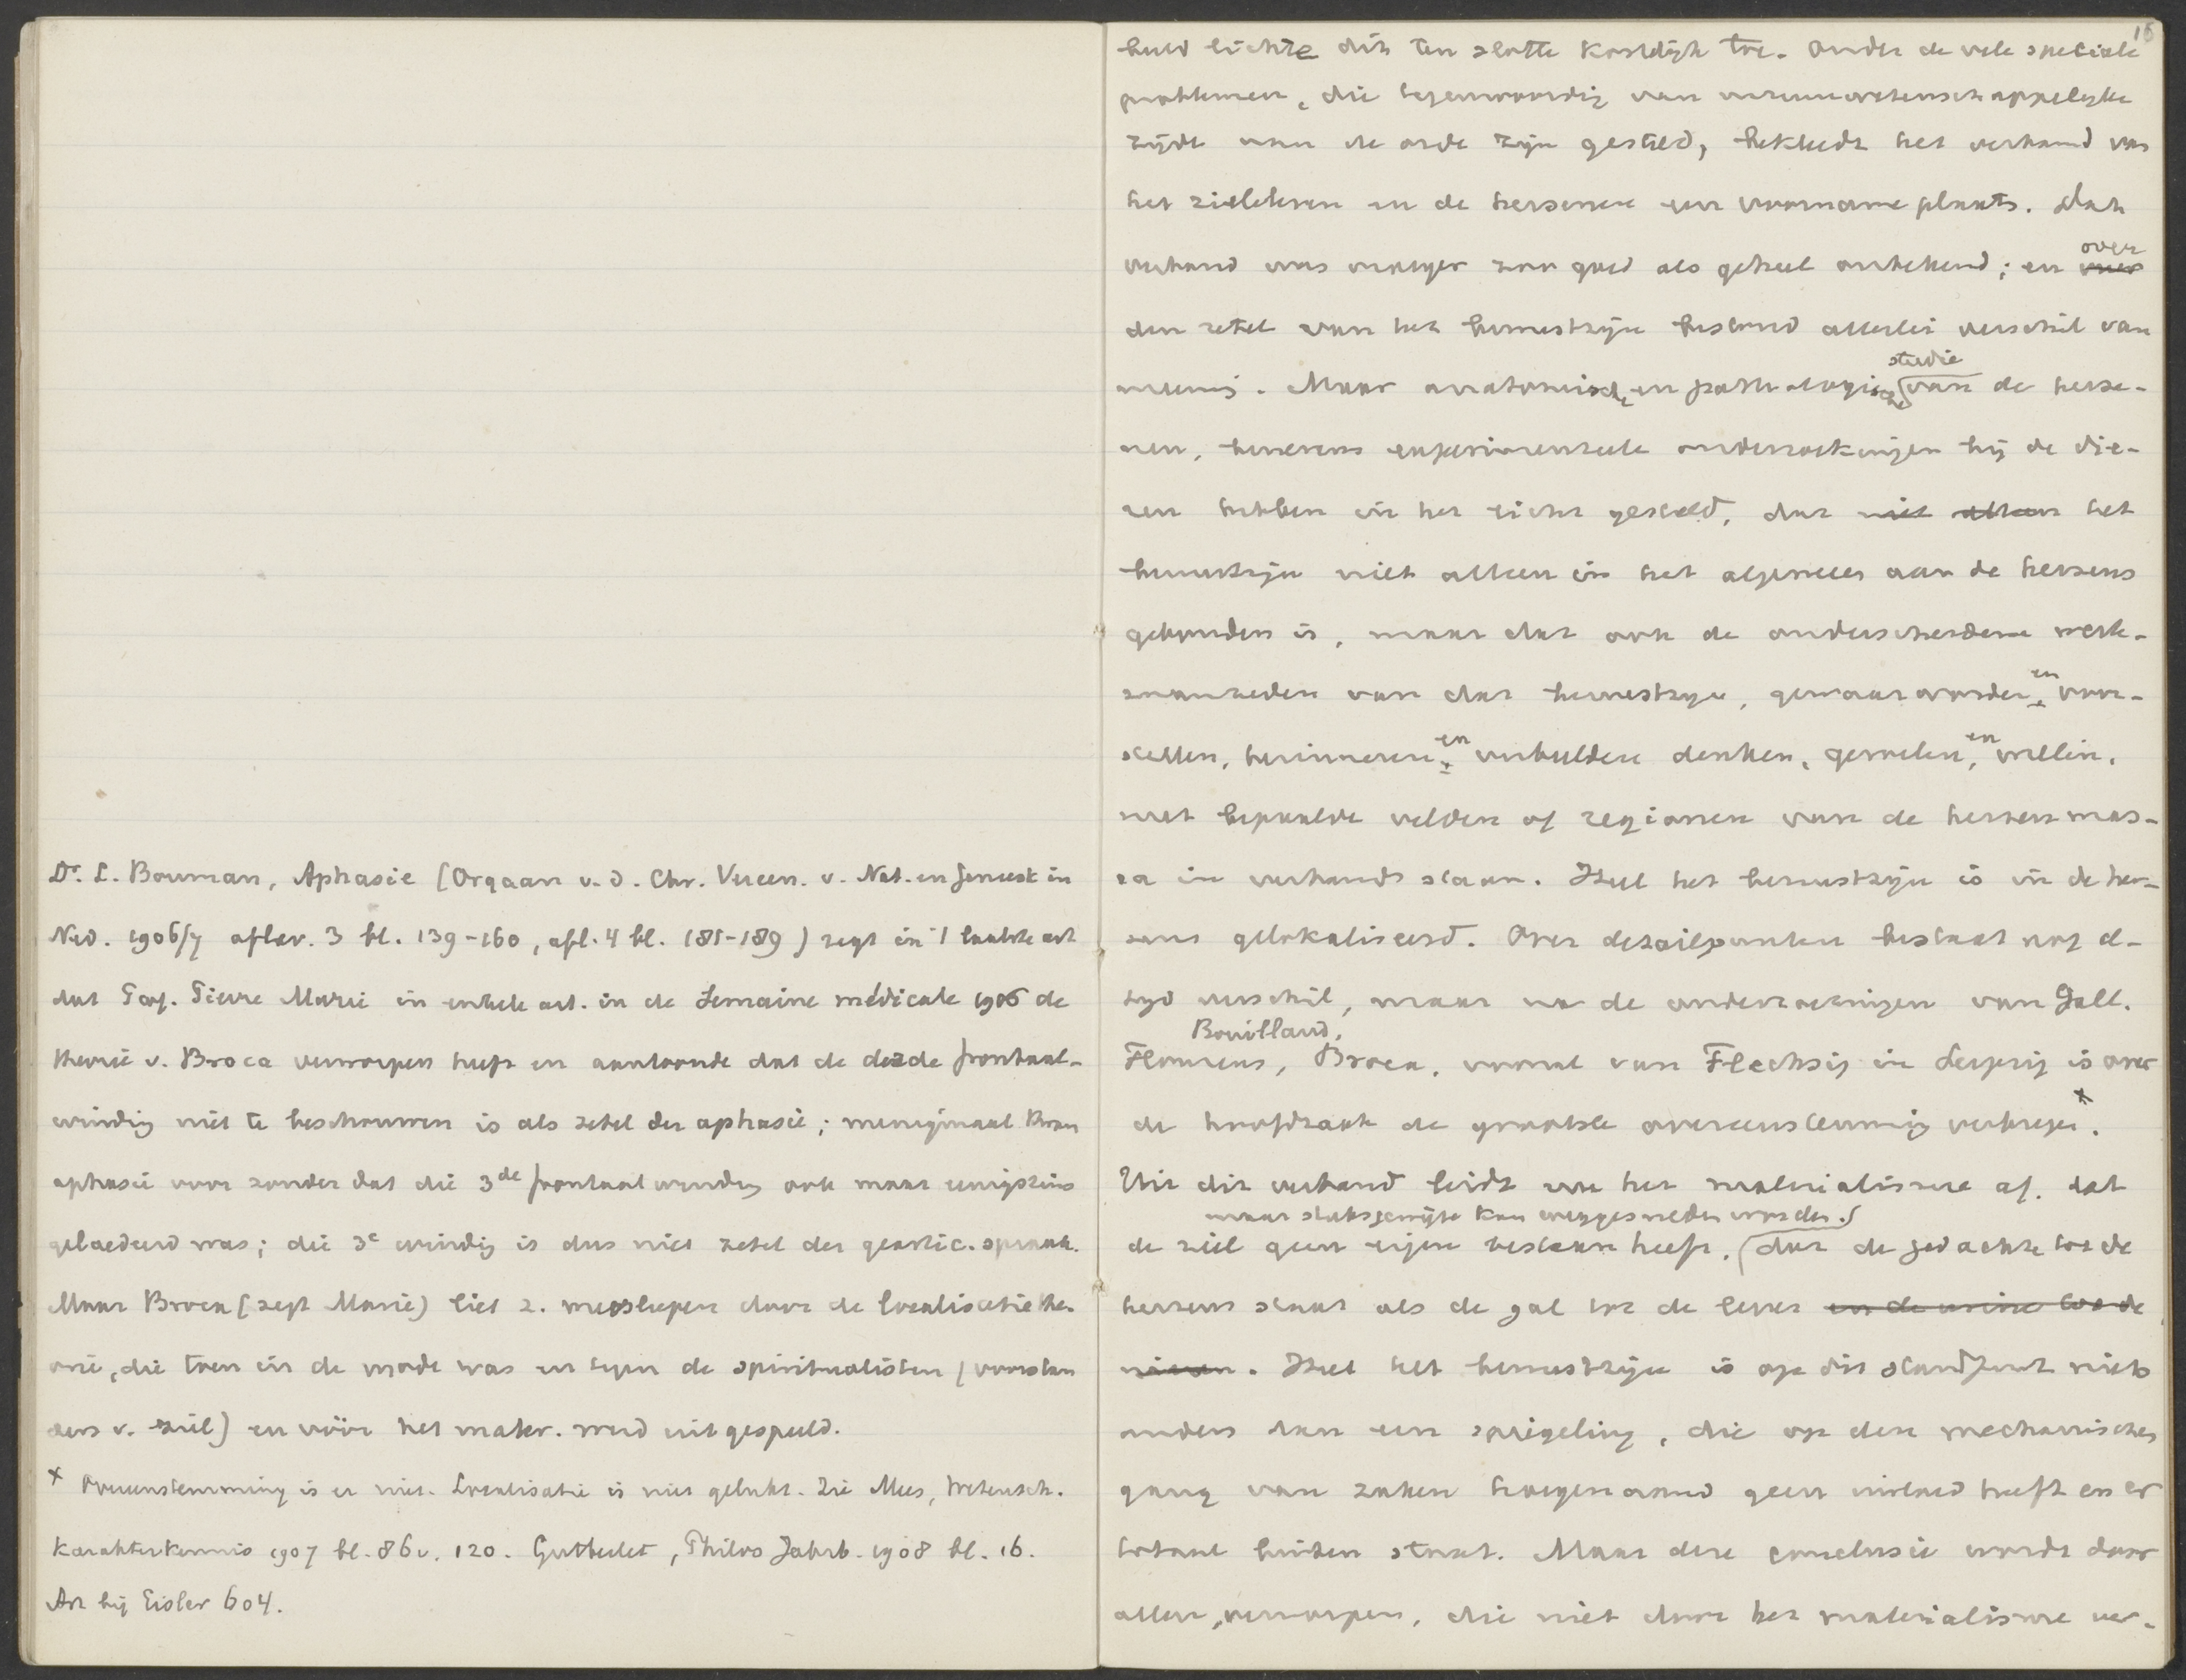 Dr. L. Bouman, Aphasie (Orgaan v. d. Chr. Vereen. v. Nat. en Geneesk in
Ned. 1906/7 aflev. 3 bl. 139-160, afl. 4 bl. 181-189) zegt in 't laatste art
dat Prof. Pierre Marie in enkele art. in de Semaine médicale 1906 de
theorie v. Broca verworpen heeft en aantoonde dat de derde frontaal-
winding niet te beschouwen is als zetel der aphasie; menigmaal kwam
aphasie voor zonder dat die 3de frontaalwinding ook maar enigszins
gelaedeerd was; die 3e winding is dus niet zetel der geartic. spraak.
Maar Broca (zegt Marie) liet z. meesleepen door de localisatiethe-
orie, die toen in de mode was en tegen de spiritualisten (voorstan
ders v. ziel) en vóór het mater. werd uitgespeeld.
x Overeenstemming is er niet. Localisatie is niet gelukt. Zie Mees, Wetensch.
Karakterkennis 1907 bl. 86v. 120. Gutberlet, Philos Jahrb. 1908 bl. 16.
Art bij Eisler 604.
15
beeld lichtte dit ten slotte kostelijk toe. Onder de vele speciale
problemen, die tegenwoordig van natuurwetenschappelijke
zijde aan de orde zijn gesteld, bekleedt het verband van
het zieleleven en de hersenen een voorname plaats. Dat
verband was vroeger zoo goed als geheel onbekend; en over
den zetel van het bewustzijn bestond allerlei verschil van
studie
meening. Maar anatomische en pathologische van de herse-
nen, benevens experimenteele onderzoekingen bij de die-
ren hebben in het licht gesteld, dat niet alleen het
bewustzijn niet alleen in het algemeen aan de hersens
gebonden is, maar dat ook de onderscheidene werk-
zaamheden van dat bewustzijn, gewaarworden en voor-
stellen, herinneren en verbeelden denken, gevoelen, en willen,
met bepaalde velden of regionen van de hersenmas-
sa in verband staan. Heel het bewustzijn is in de her-
sens gelokaliseerd. Over detailpunten bestaat nog al-
tyd verschil, maar na de onderzoekingen van Gall,
Bouillaud,
Flourens, Broca, vooral van Flechsig in Leipzig is over
de hoofdzaak de grootste overeenstemming verkregen x.
Uit dit verband leidt nu het materialisme af, dat
maar stuksgewijze kan weggesneden worden.
de ziel geen eigen bestaan heeft, dat de gedachte tot de
hersens staat als de gal tot de lever en de urine tot de
nieren. Heel het bewustzijn is op dit standpunt niets
anders dan een spiegeling, die op den mechanischen
gang van zaken hoegenaamd geen invloed heeft en er
totaal buiten staat. Maar deze conclusie wordt door
allen verworpen, die niet door het materialisme ver-